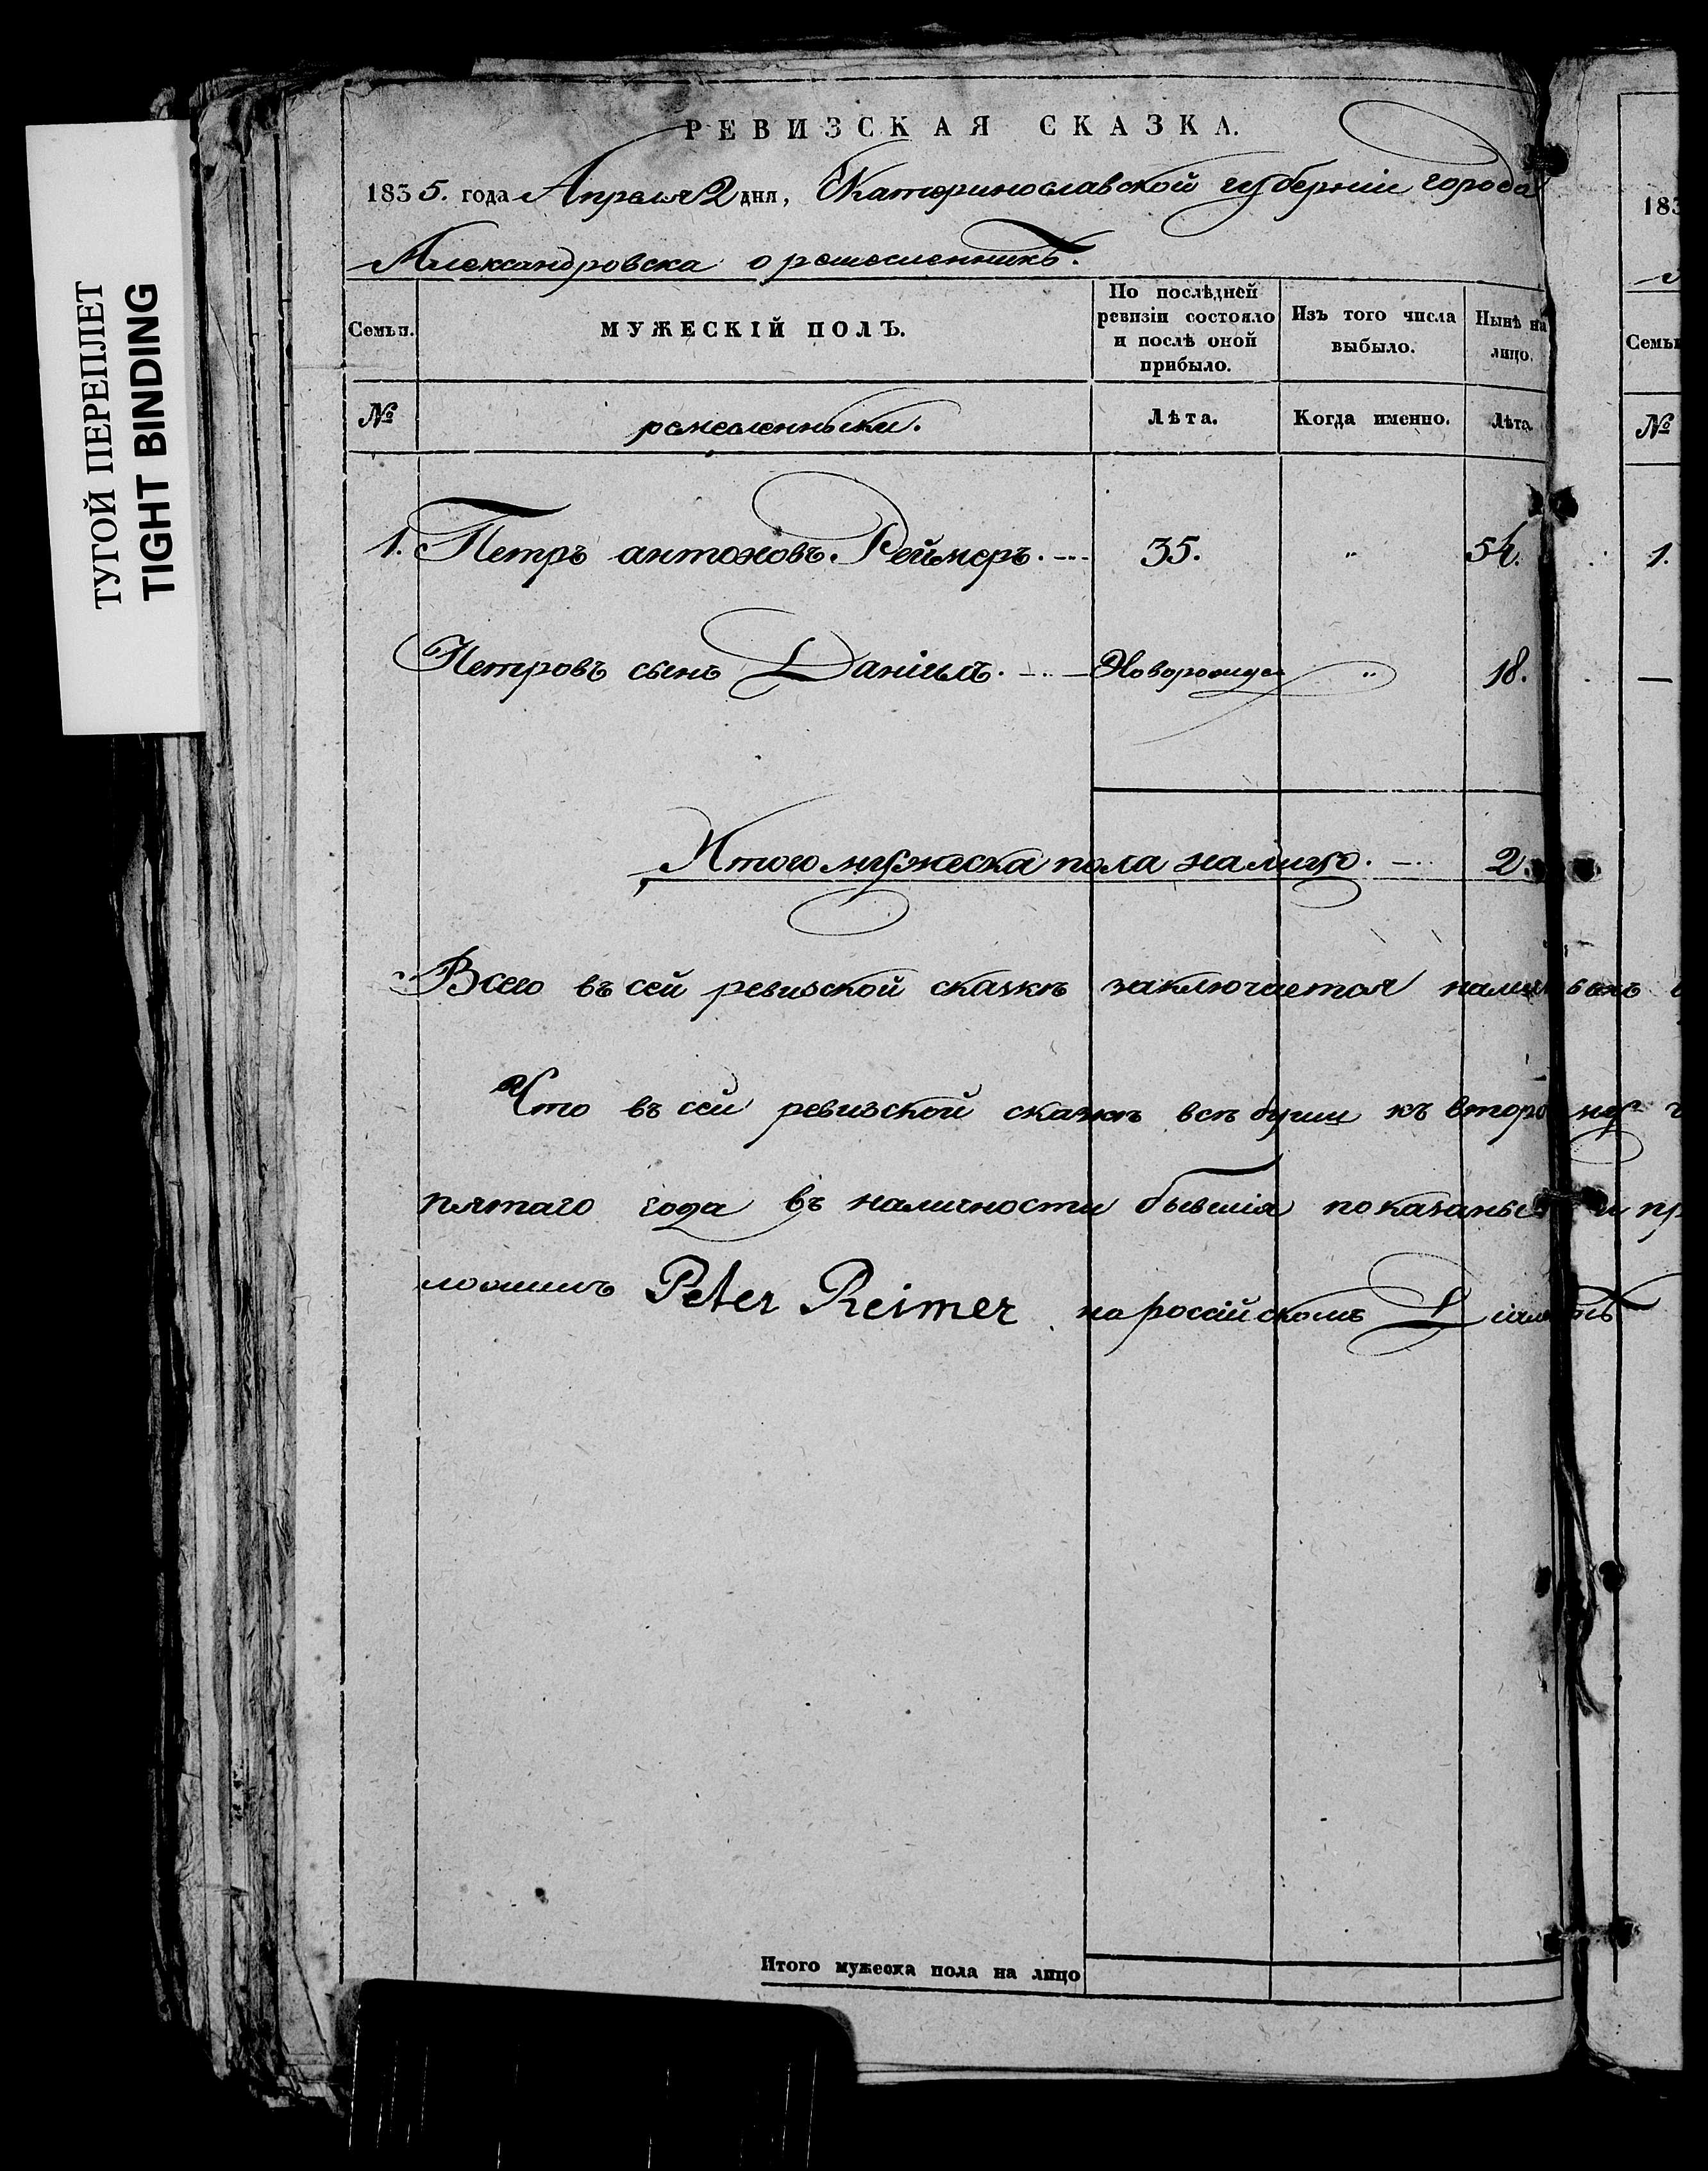 ТУГОЙ ПЕРЕПЛЕТ
TIGHT BINDING
РЕВИЗСКАЯ СКАЗКА.
1835. года Апреля 2 дня, Екатеринославской губерніи города
Александровска о ремесленникѣ.
Семьи.
МУЖЕСКІЙ ПОЛЪ.
По послѣдней ревизіи состояло и послѣ оной прибыло.
Изъ того числа выбыло.
Нынѣ на лицо.
№
ремесленники.
Лѣта.
Когда именно.
Лѣта.
1. Петръ антоновъ Реймеръ. 35. " 54.
Петровъ сынъ Даніилъ. Новорожде " 18.
Итого мужеска пола налицо. 2.
Всего въ сей ревизской сказкѣ заключается
Что въ сей ревизской сказкѣ всѣ души къ второму
пятаго года въ наличности бывшія показаны и пр
Peter Reimer на російскомъ
Итого мужеска пола на лицо
183
Семьи
№
1.